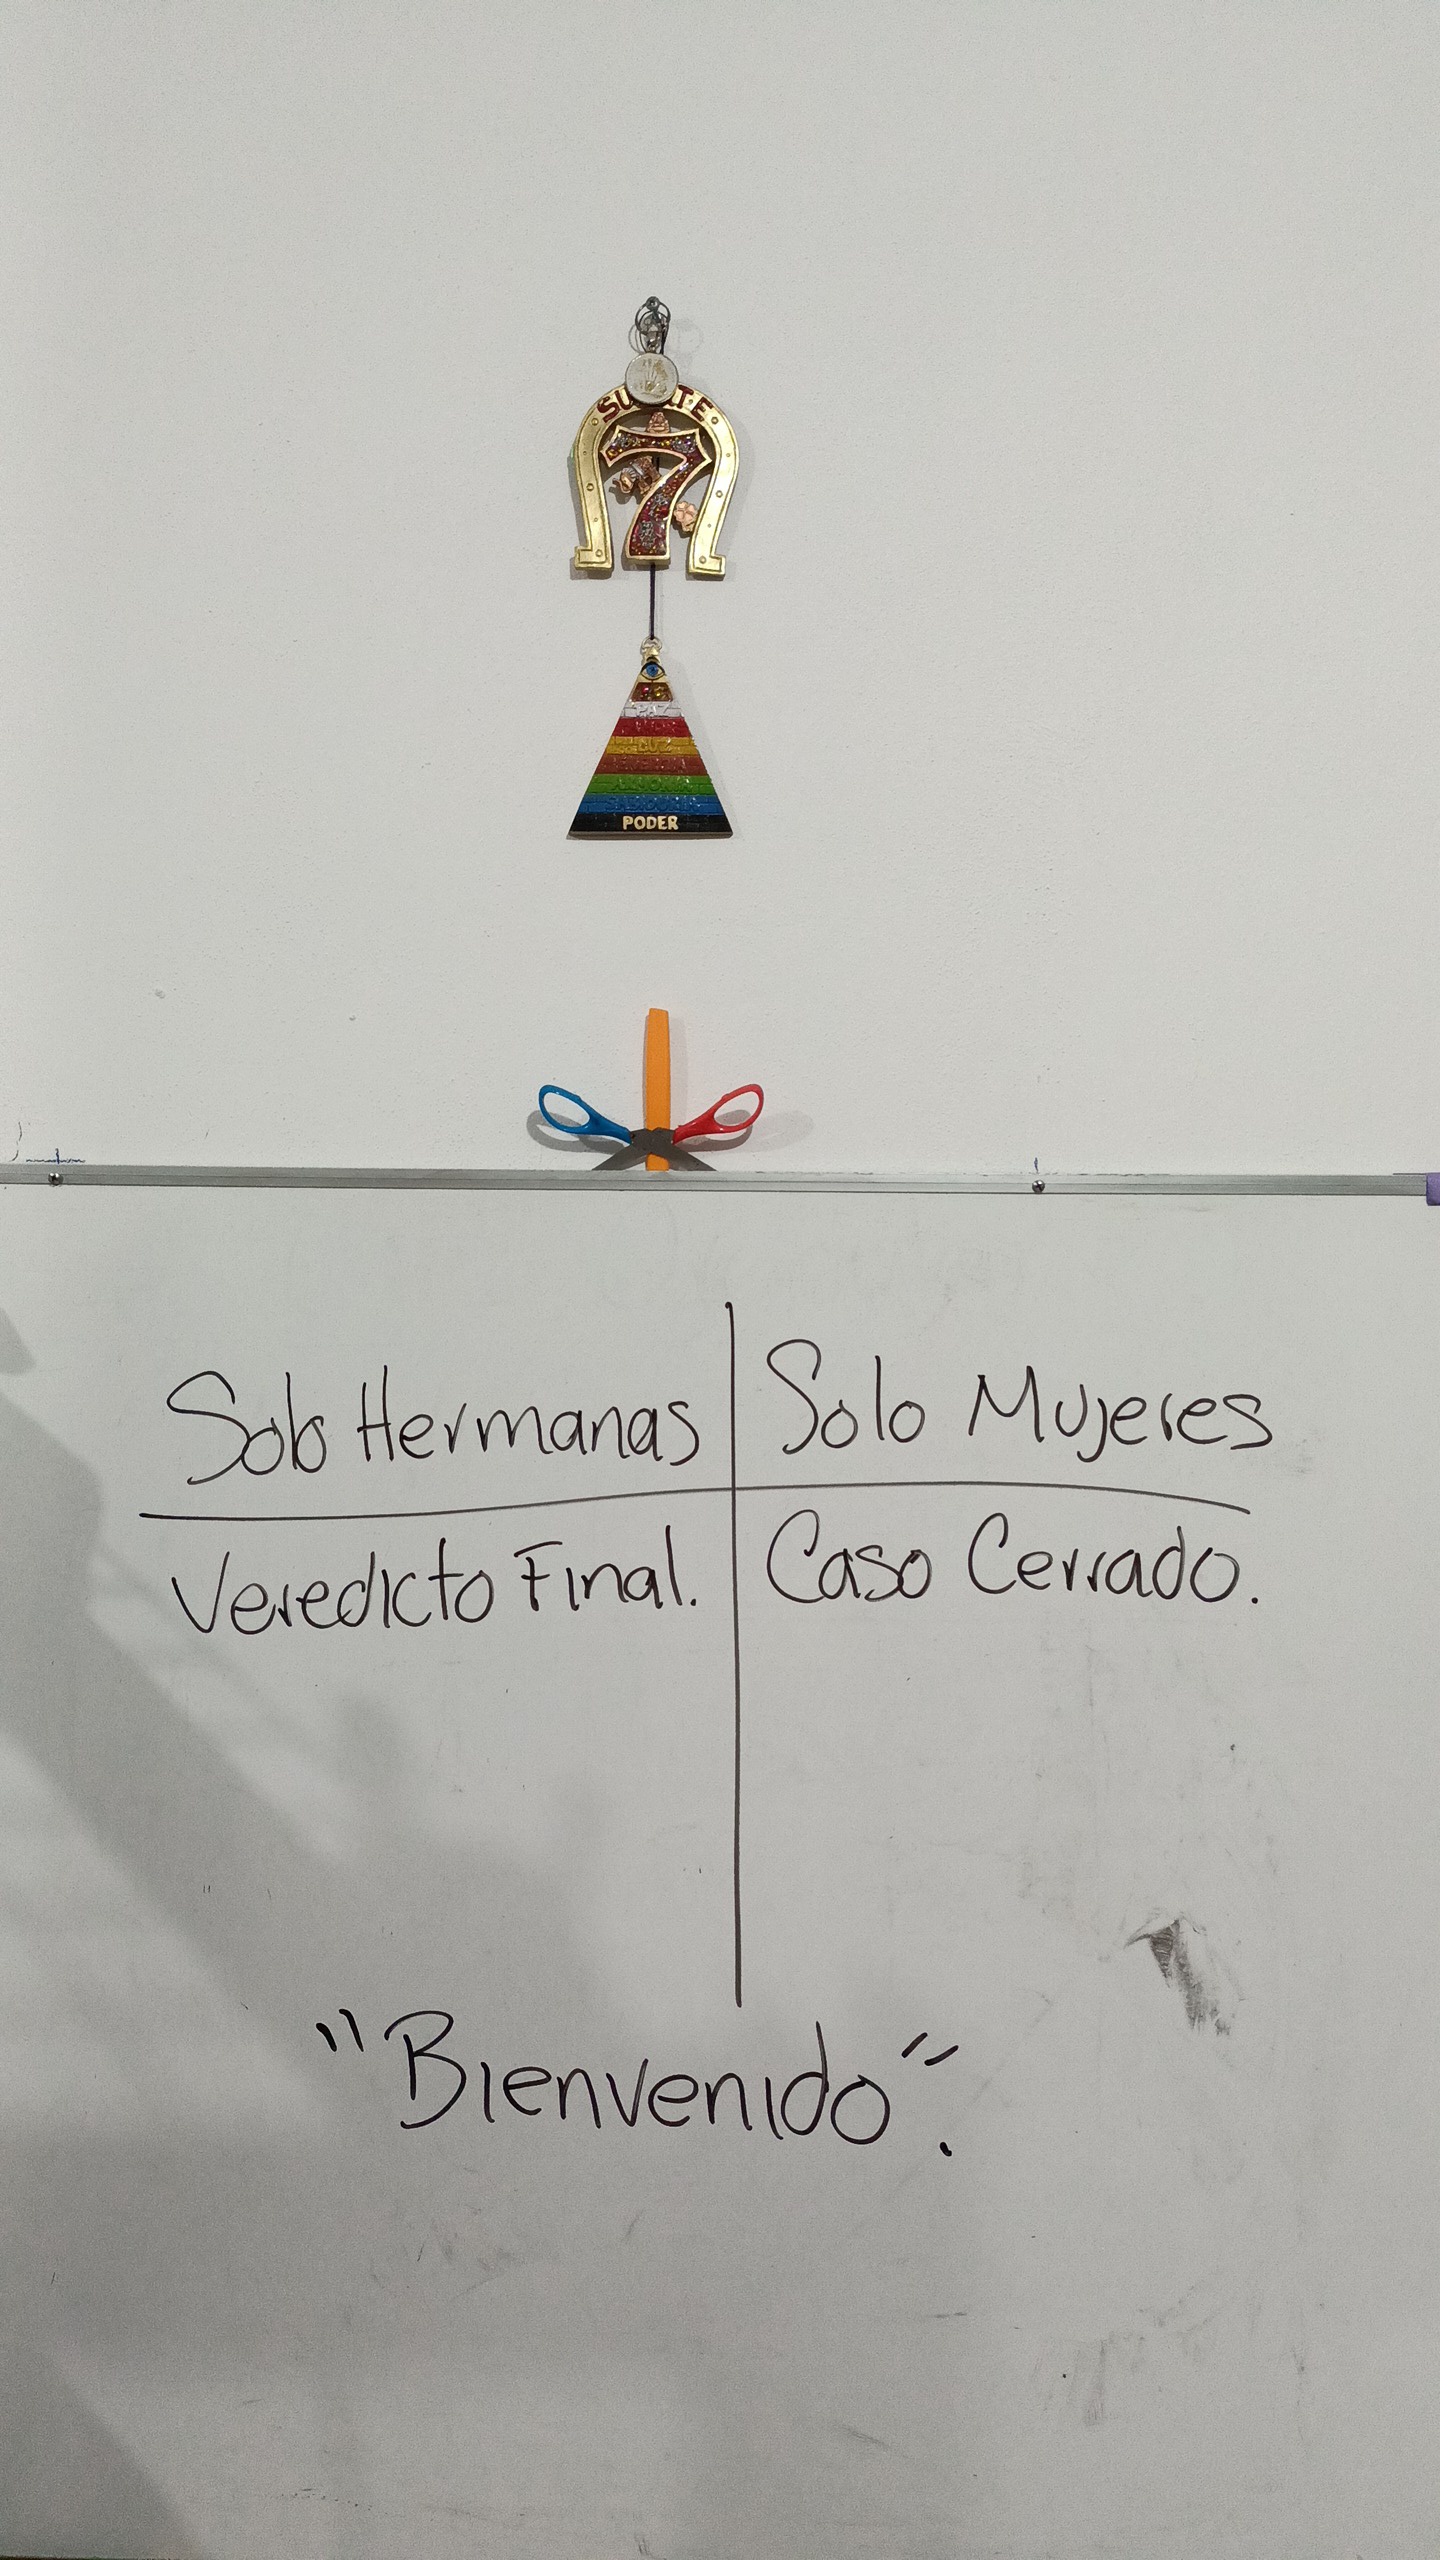 SUERTE
7
PAZ
LUZ
ARMONIA
SABIDURIA
PODER
Solo Hermanas
Solo Mujeres
Veredicto Final.
Caso Cerrado.
"Bienvenido".